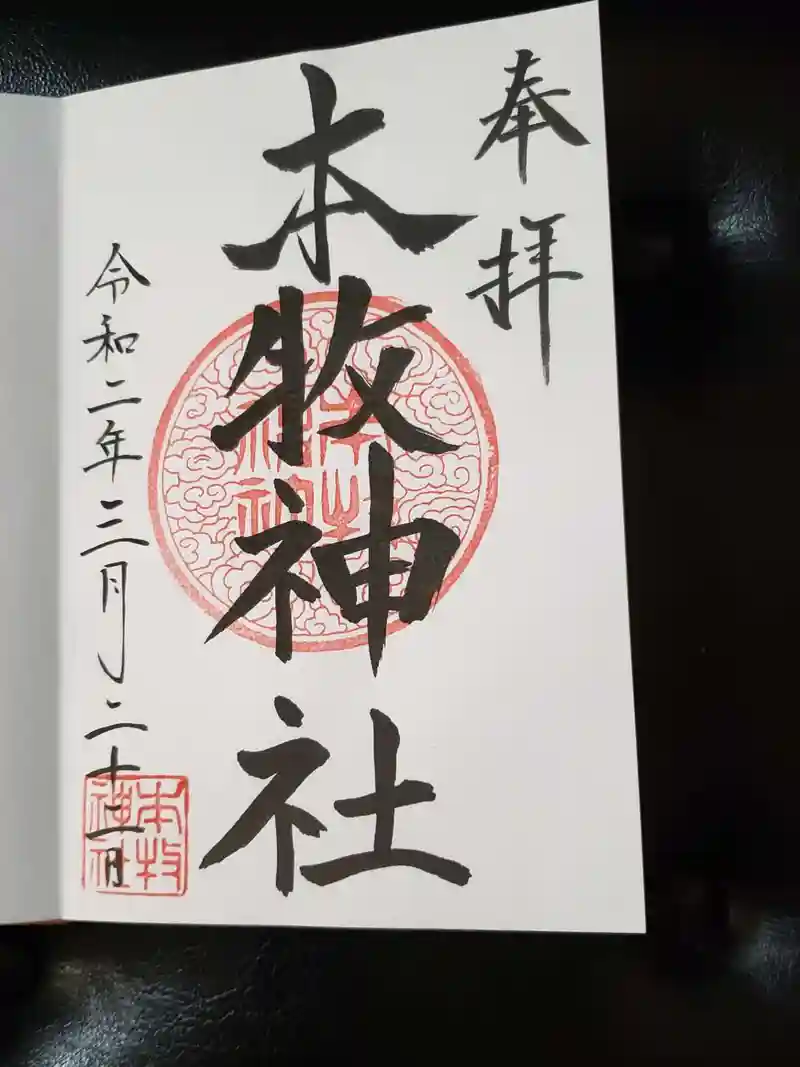 奉拝
本牧神社
令和二年三月二十二日
本牧
神社
本牧
神社